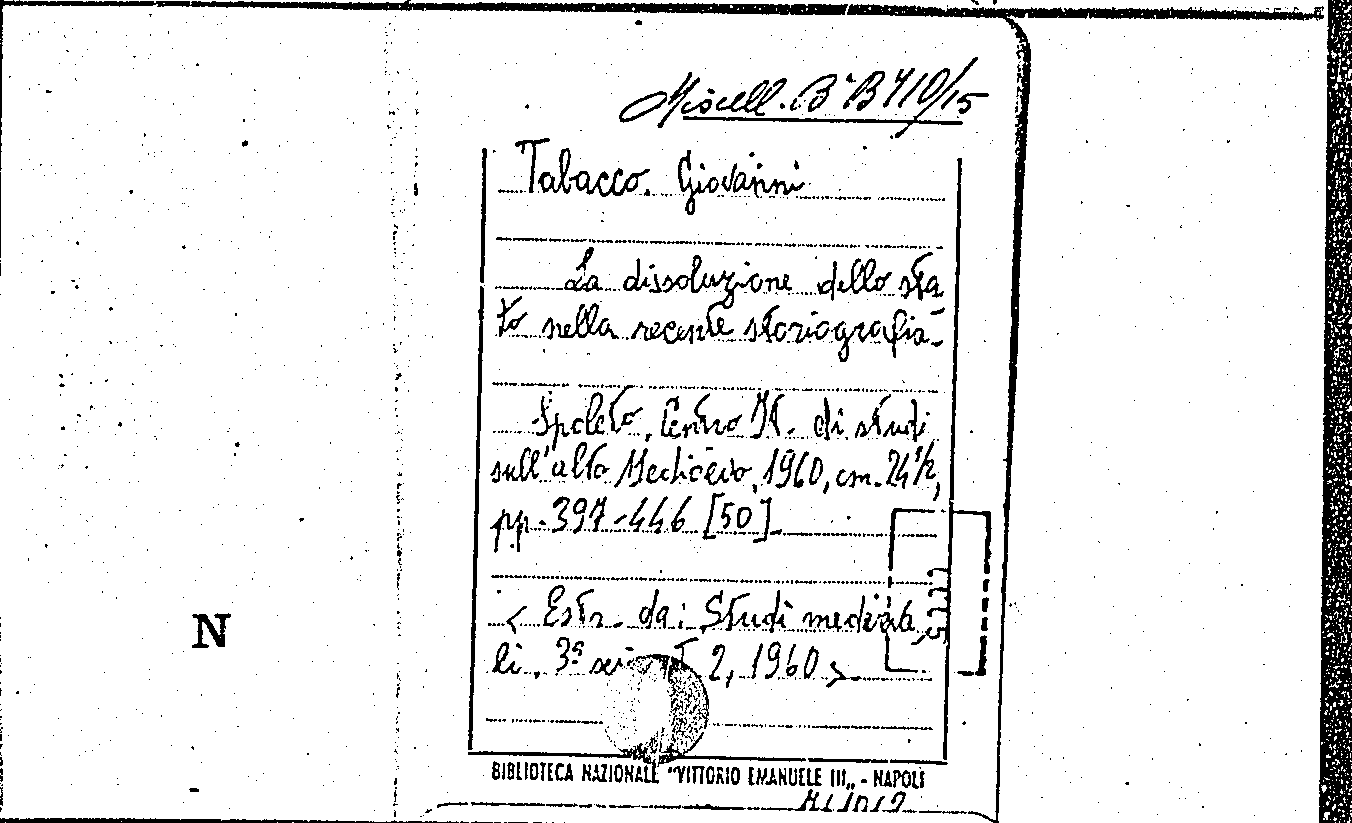 Miscell. Bª B 410/15
Tabacco. Giovanni
La dissoluzione dello sta
to nella recente storiografia.
Spoleto, Centro It. di studi
sull'alto Medioevo, 1960, cm. 24½,
pp. 397-446 [50]
< Estr. da: Studi medieva
li. 3ª serie I 2, 1960 >
N
BIBLIOTECA NAZIONALE "VITTORIO EMANUELE III„ - NAPOLI